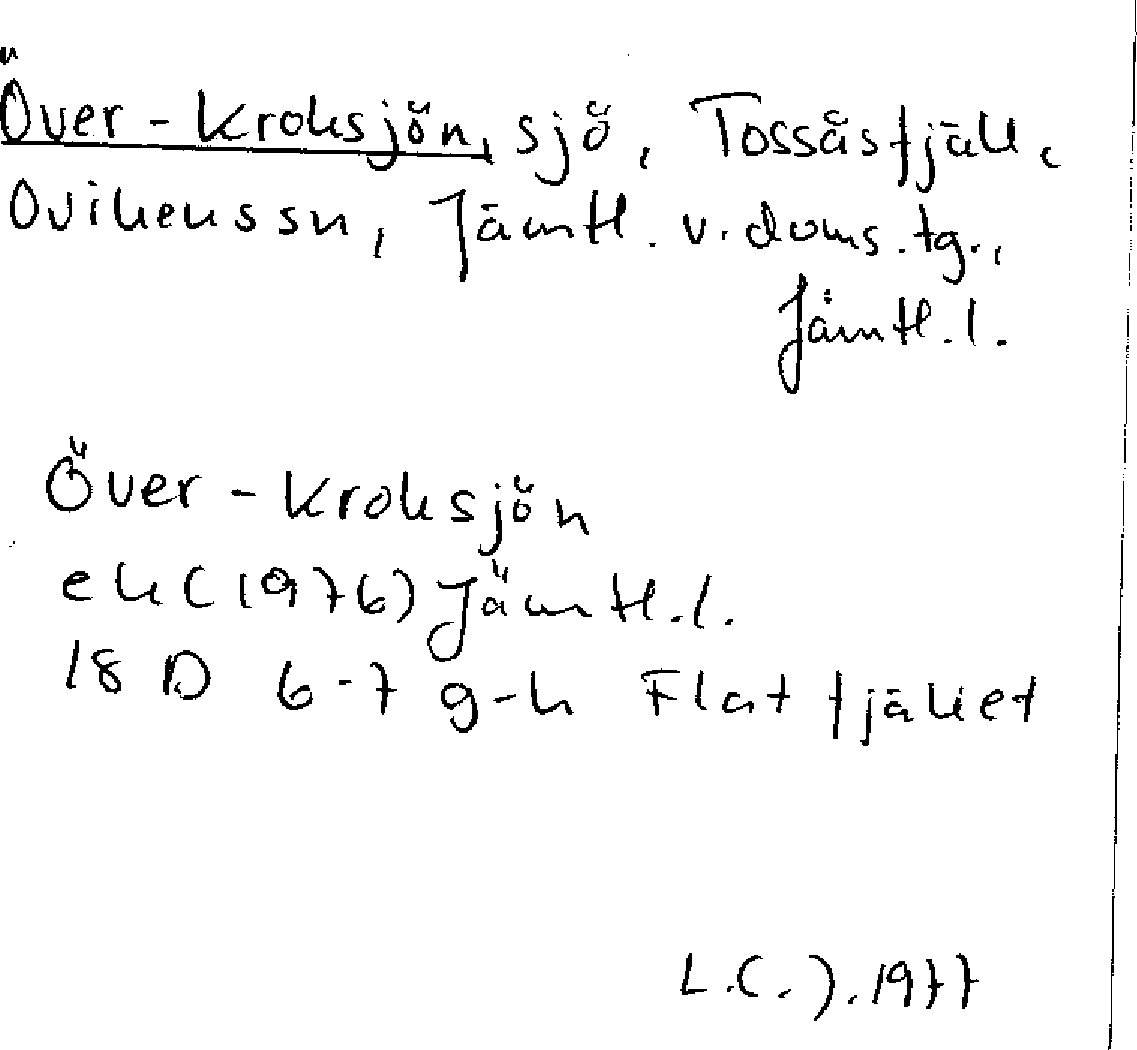 Över-Kroksjön, sjö, Tossåsfjäll,
Ovikens sn, Jämtl. v. doms. tg.,
Jämtl. l.
Över-Kroksjön
ek (1976) Jämtl. l.
18 D 6-7 g-h Flatfjället
L.C.J. 1977